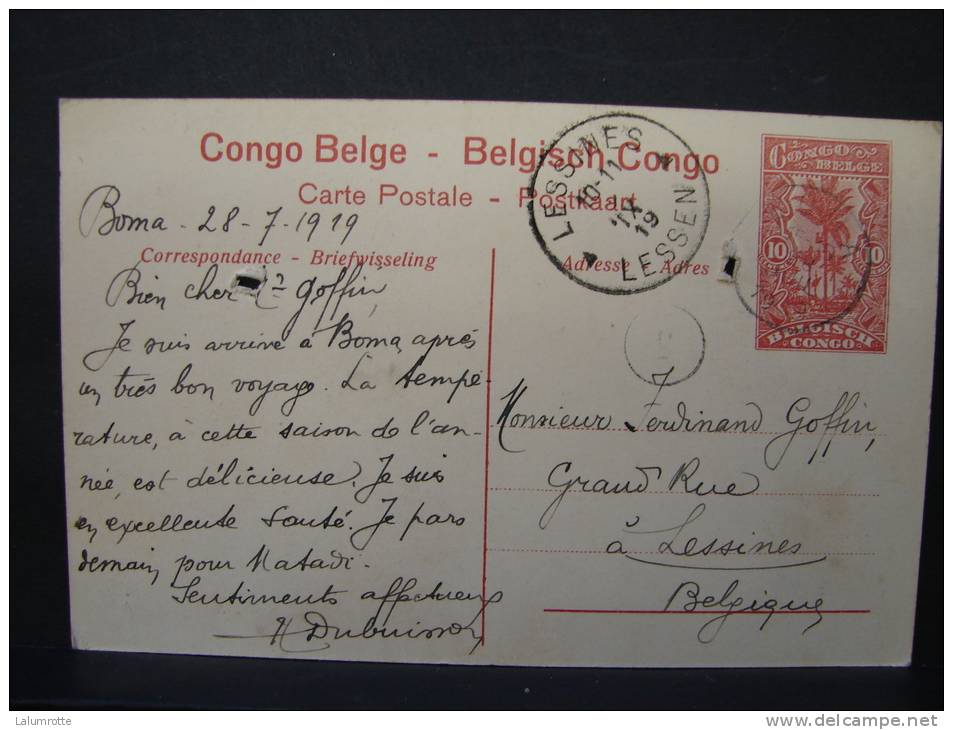 Congo Belge - Belgisch Congo
Carte Postale - Postkaart
Boma - 28-7-1919
Correspondance - Briefwisseling
Bien cher Goffin,
Je suis arrivé à Boma, après
un très bon voyage. La tempé-
rature, à cette saison de l'an-
née, est délicieuse. Je suis
en excellente santé. Je pars
demain pour Matadi.
Sentiments affectueux
H Dubuisson
LESSINES
10-11
IX
19
LESSEN
CONGO BELGE
10 10
BELGISCH CONGO
Adresse - Adres
Monsieur Ferdinand Goffin,
Grand'Rue
à Lessines
Belgique
Lalumrotte
delcampe.net